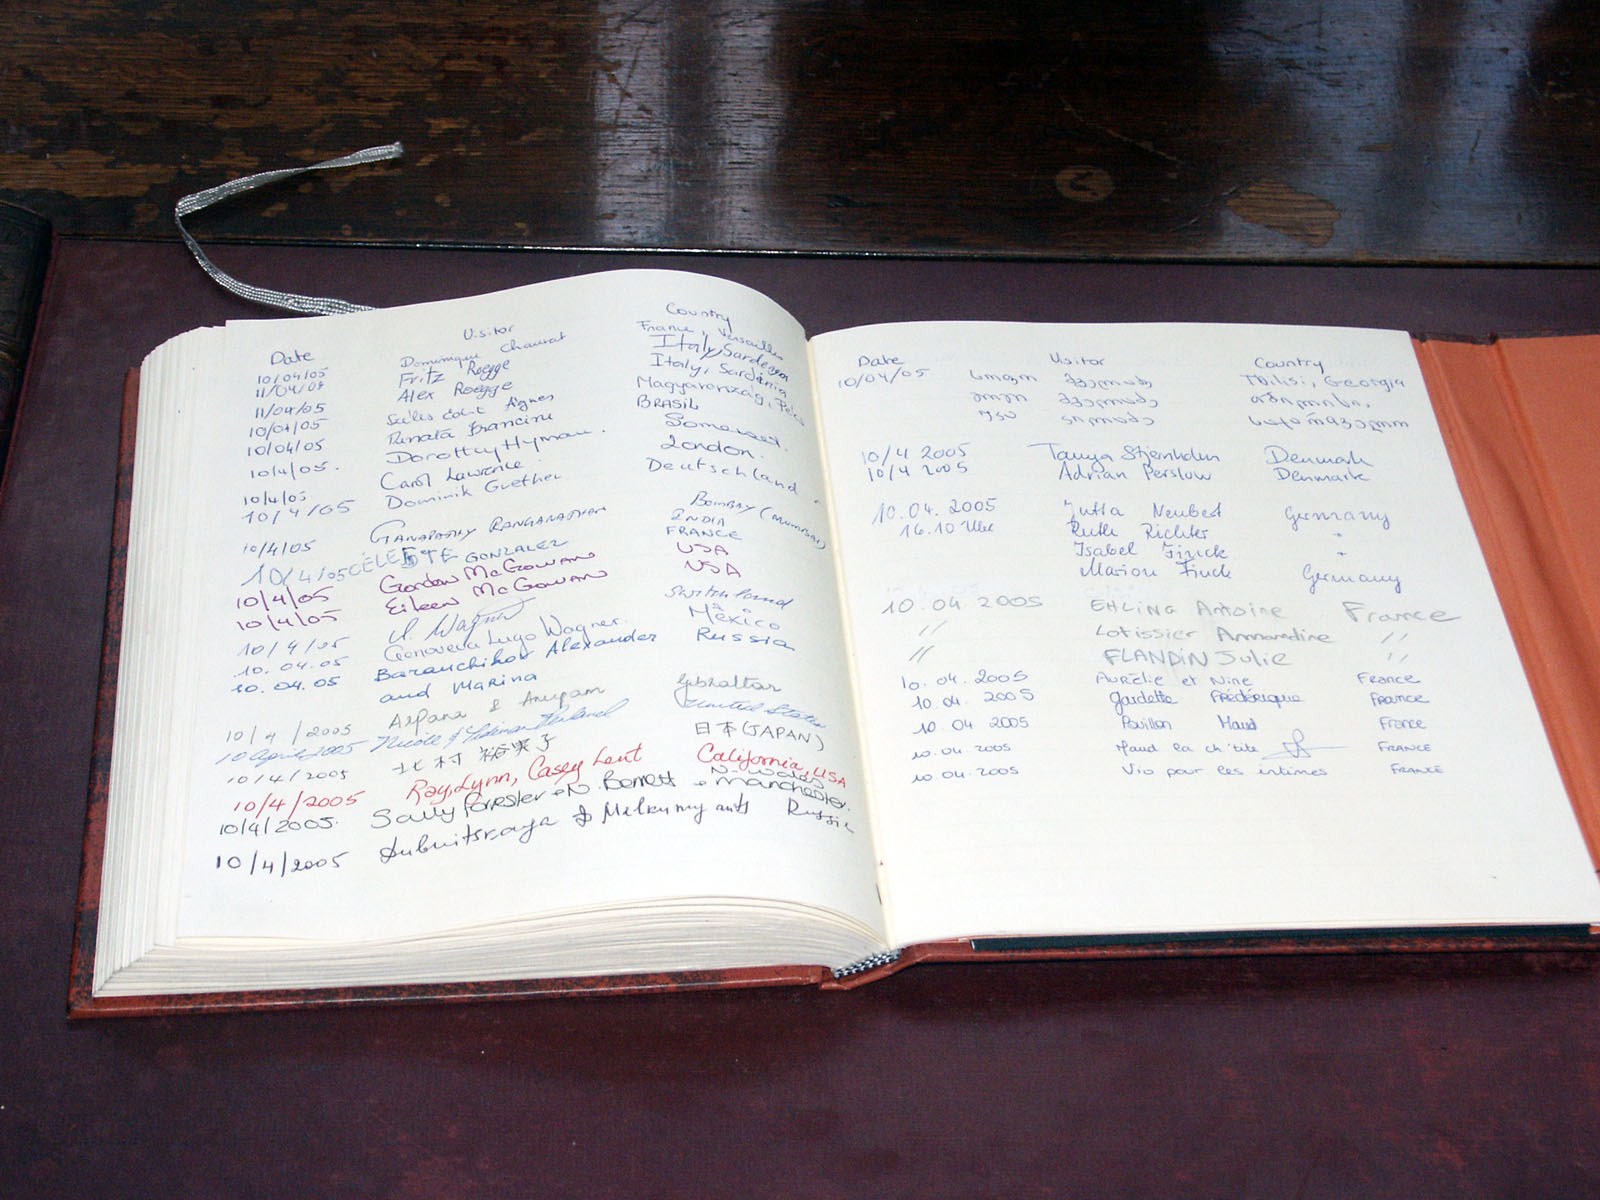 Date Visitor Country
10/04/05 Dominique Chauvat France, Versailles
11/04/04 Fritz Roegge Italy, Sardegna
11/04/05 Alex Roegge Italy, Sardinia
10/04/05 Ágnes Magyarország, Pécs
10/04/05 Renata Francini BRASIL
10/4/05. Dorothy Hyman. Somerset.
10/4/05 Carol Lawrence London.
10/4/05 Dominik Guether Deutschland
10/4/05 GANAPATHY RANGANATHAN BOMBAY (MUMBAI)
INDIA
10/4/05 CÉLESTE GONZALEZ FRANCE
10/4/05 Gordon McGowan USA
10/4/05 Eileen McGowan USA
10/4/05 Wagner Switzerland
10.04.05 Genoveva Lugo Wagner México
10.04.05 Baranchikov Alexander Russia
and Marina
10/4/2005 Arpana & Anupam Gibraltar
10 April 2005 Nicole & United States
10/4/2005 北村 子 日本(JAPAN)
10/4/2005 Ray, Lynn, Casey Lent California, USA
10/4/2005. Sally Forrester + N. Bennett N. Wales + Manchester.
10/4/2005 Russia
Date Visitor Country
10/04/05 Tbilisi, Georgia
10/4 2005 Tanya Stjernholm Denmark
10/4 2005 Adrian Perslow Denmark
10.04.2005 Jutta Neubert Germany
16.10 Uhr Ruth Richter "
Isabel Finck "
Marion Finck Germany
10.04.2005 EHLING Antoine France
// Lotissier Amandine //
// FLANDIN Julie //
10.04.2005 Aurélie et Nine FRANCE
10.04 2005 Gaudette Frédérique FRANCE
10.04 2005 Pavillon Maud France
10.04.2005 Maud la ch'tite FRANCE
10.04.2005 Vio pour les intimes FRANCE